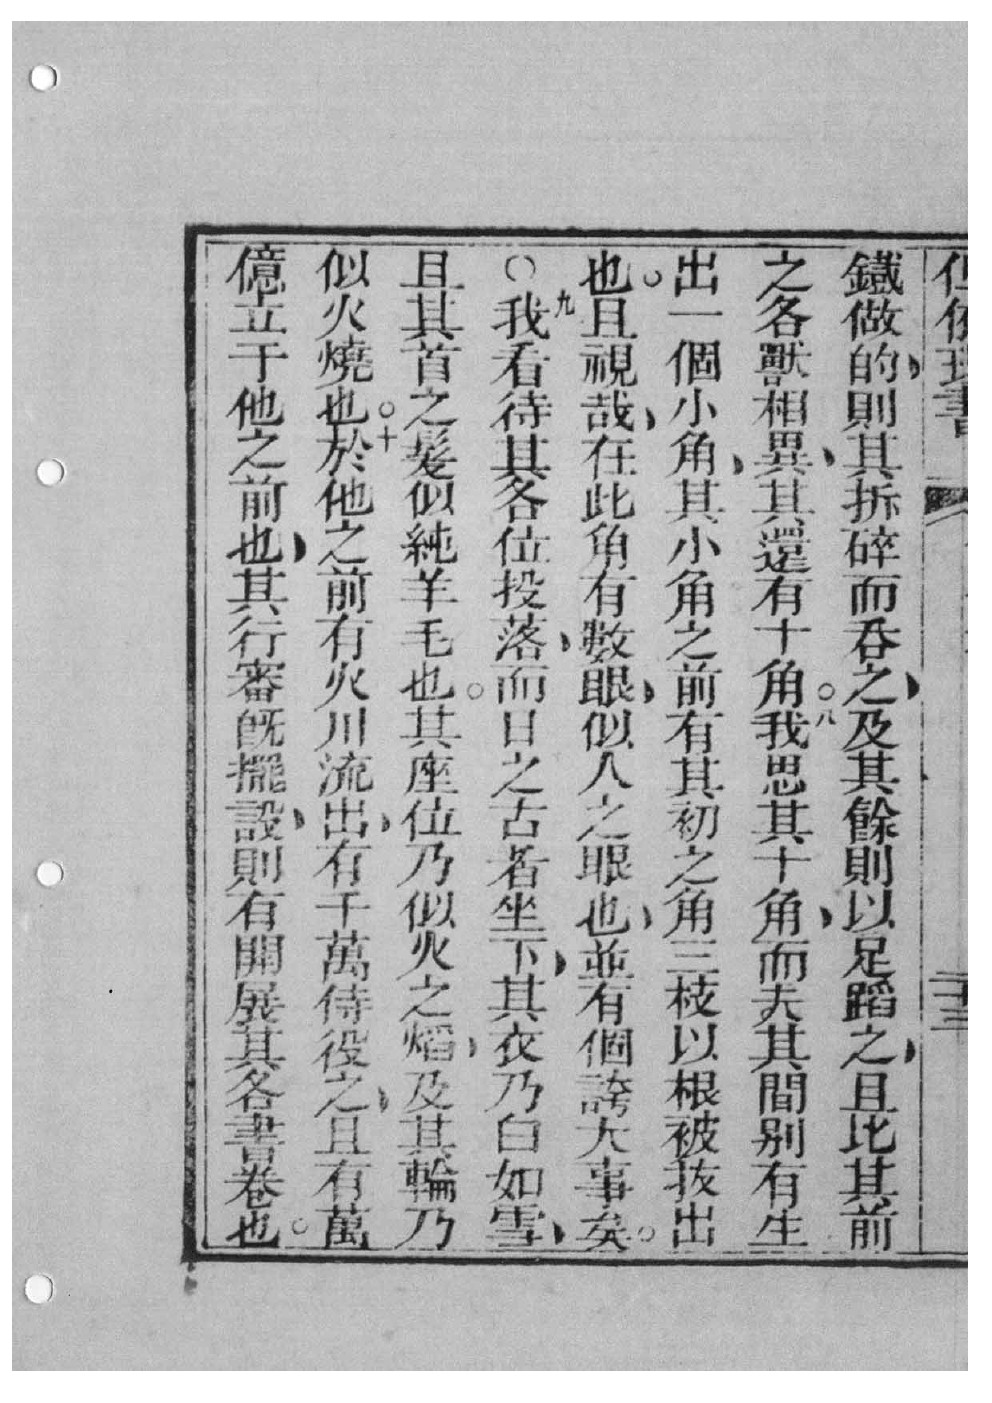 鐵做的、則其拆碎而呑之、及其餘則以足蹈之、且比其前
之各獸相異、其還有十角。八我思其十角、而夫其間別有生
出一個小角、其小角之前有其初之角三枝以根被拔出
也。且視哉、在此角有數眼、似人之眼也、並有個誇大事矣。
〇九我看待其各位投落、而日之古者坐下、其衣乃白如雪、
且其首之髮似純羊毛也。其座位乃似火之熖、及其輪乃
似火燒也。十於他之前有火川流出、有千萬侍役之、且有萬
億立于他之前也、其行審旣擺設、則有開展其各書卷也。